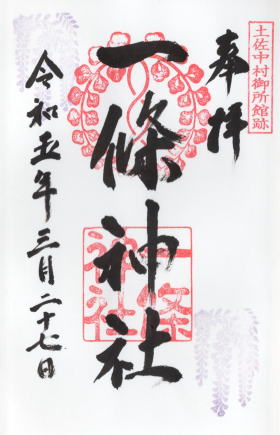 土佐中村御所館跡
奉拝
一條神社
一條神社
令和五年三月二十七日